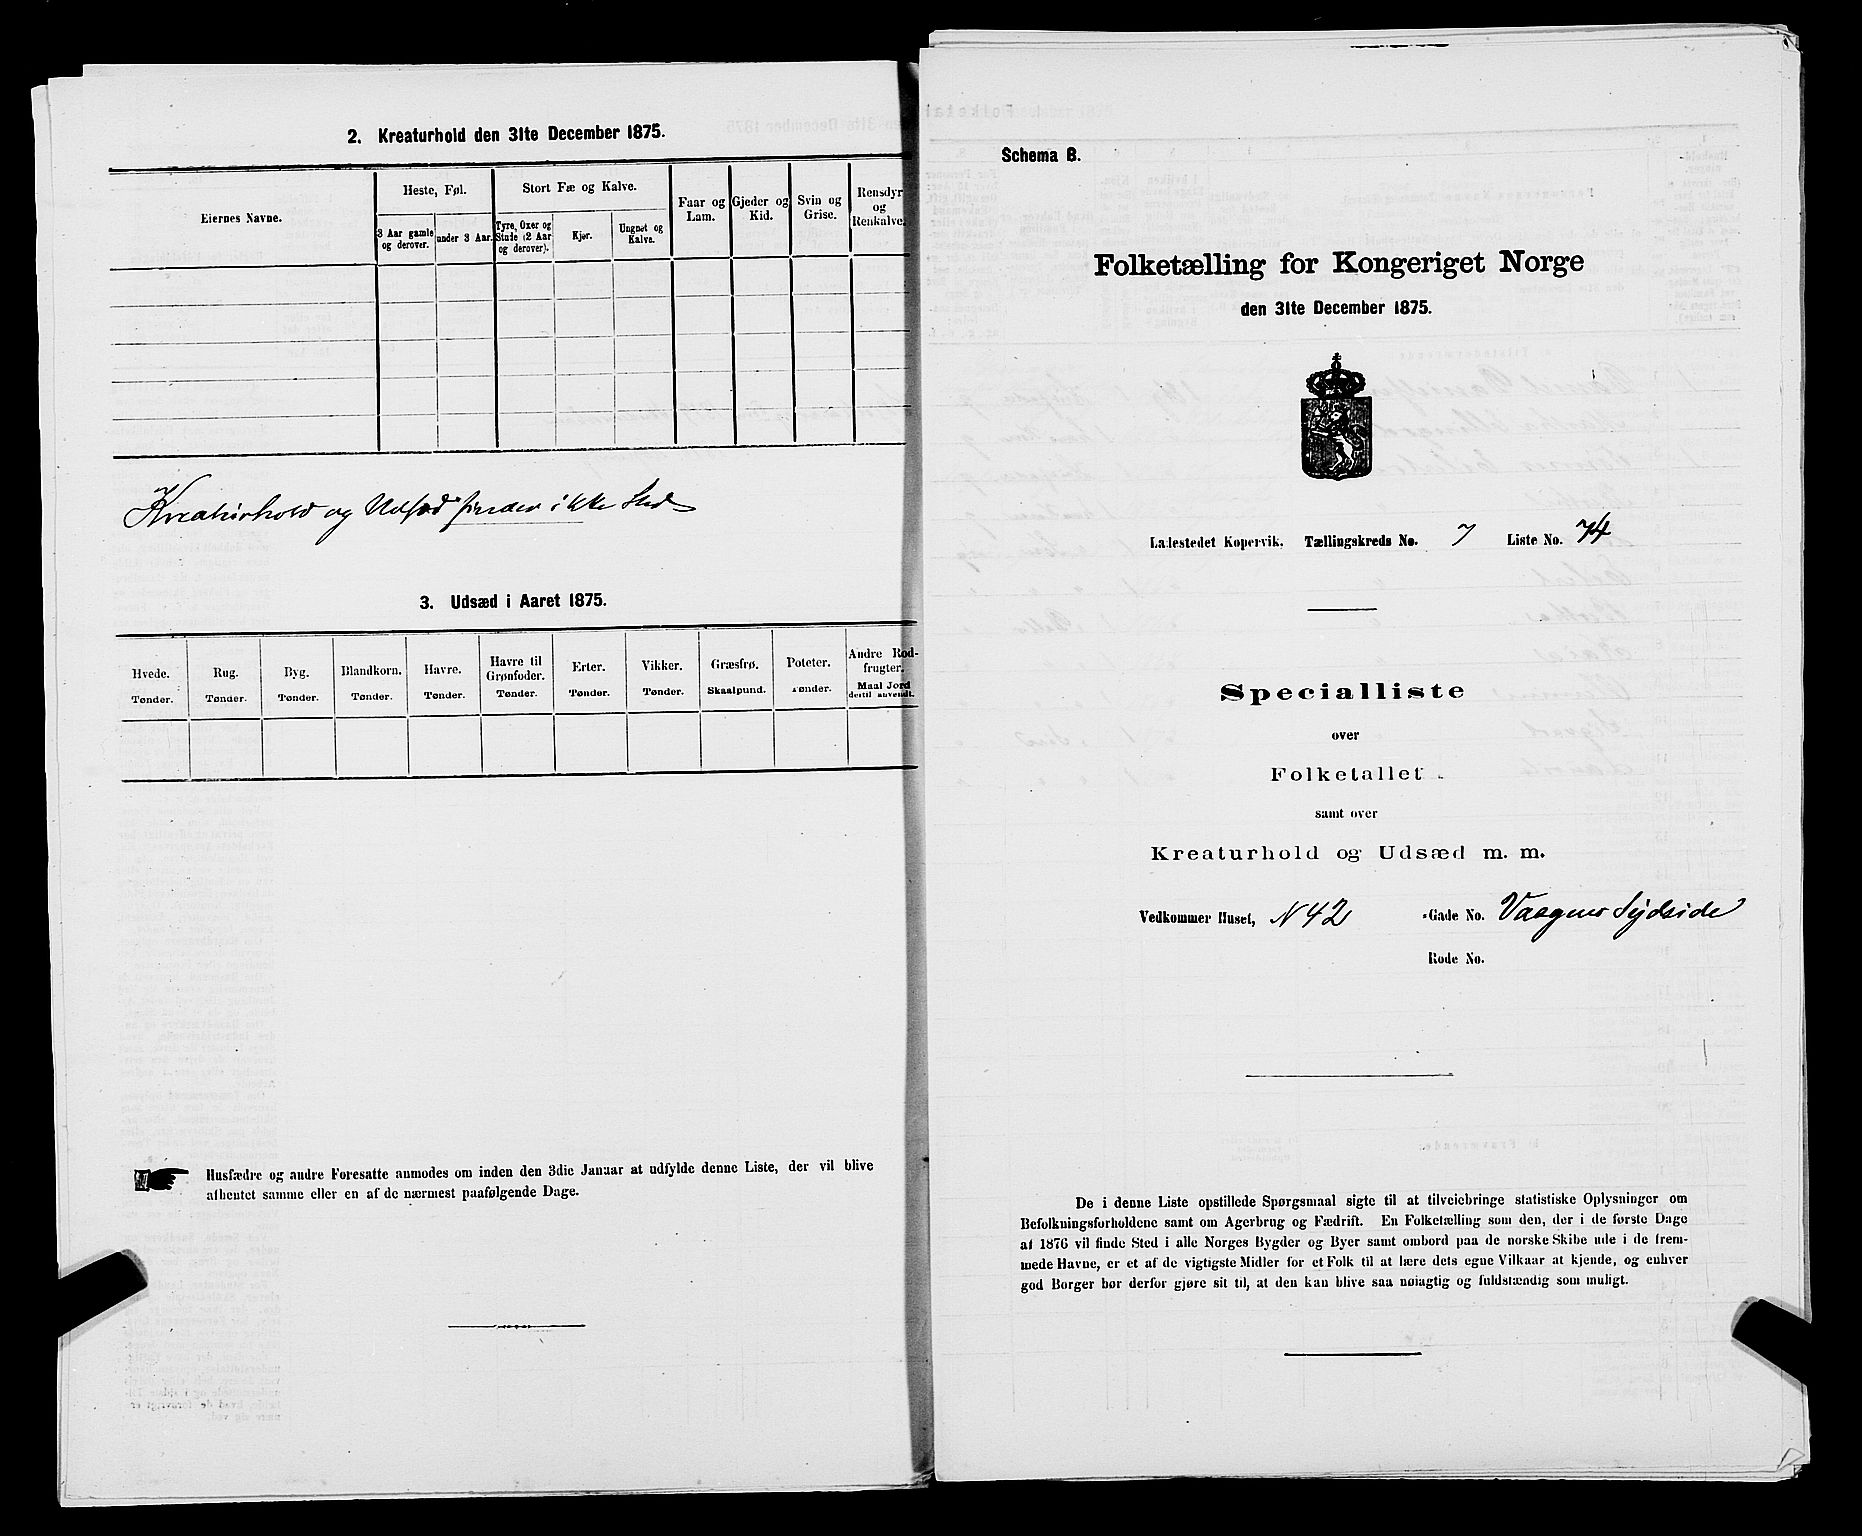 2. Kreaturhold den 31te December 1875.
Eiernes Navne.
Heste, Føl.
Stort Fæ og Kalve.
Faar og
Lam.
Gjeder og
Kid.
Svin og
Grise.
Rensdyr
og
Renkalve.
3 Aar gamle
og derover.
under 3 Aar.
Tyre, Oxer og
Stude (2 Aar
og derover).
Kjør.
Ungnøt og
Kalve.
Kreaturhold og Udsæd finder ikke Sted
3. Udsæd i Aaret 1875.
Hvede.
Tønder.
Rug.
Tønder.
Byg.
Tønder.
Blandkorn.
Tønder.
Havre.
Tønder.
Havre til
Grønfoder.
Tønder.
Erter.
Tønder.
Vikker.
Tønder.
Græsfrø.
Skaalpund.
Poteter.
Tønder.
Andre Rod-
frugter.
Maal Jord
dertil anvendt.
Husfædre og andre Foresatte anmodes om inden den 3die Januar at udfylde denne Liste, der vil blive
afhentet samme eller en af de nærmest paafølgende Dage.
Schema B.
Folketælling for Kongeriget Norge
den 31te December 1875.
Ladestedet Kopervik. Tællingskreds No. 7 Liste No. 74
Specialliste
over
Folketallet
samt over
Kreaturhold og Udsæd m. m.
Vedkommer Huset, N 42 -Gade No. Vaagens Sydside
Rode No.
De i denne Liste opstillede Spørgsmaal sigte til at tilveiebringe statistiske Oplysninger om
Befolkningsforholdene samt om Agerbrug og Fædrift. En Folketælling som den, der i de første Dage
af 1876 vil finde Sted i alle Norges Bygder og Byer samt ombord paa de norske Skibe ude i de frem-
mede Havne, er et af de vigtigste Midler for et Folk til at lære dets egne Vilkaar at kjende, og enhver
god Borger bør derfor gjøre sit til, at den kan blive saa nøiagtig og fuldstændig som muligt.